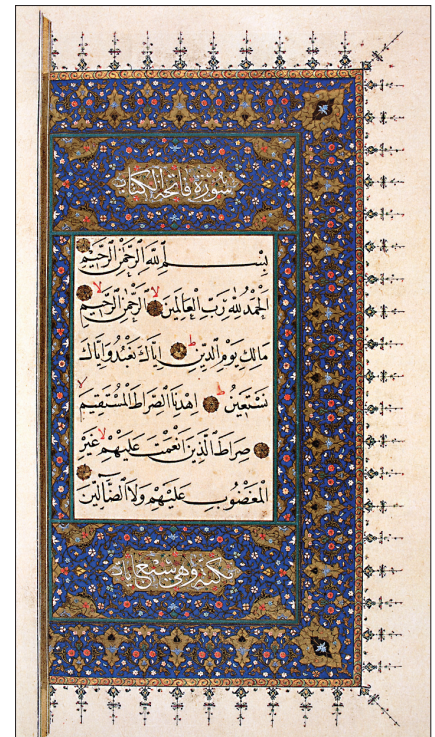 سُورَةُ فَاتِحَةِ الْكِتَابِ
بِسْمِ اللَّهِ الرَّحْمَنِ الرَّحِيمِ
الْحَمْدُ لِلَّهِ رَبِّ الْعَالَمِينَ لا الرَّحْمَنِ الرَّحِيمِ لا
مَالِكِ يَوْمِ الدِّينِ ط إِيَّاكَ نَعْبُدُ وَإِيَّاكَ
نَسْتَعِينُ ط اهْدِنَا الصِّرَاطَ الْمُسْتَقِيمَ لا
صِرَاطَ الَّذِينَ أَنْعَمْتَ عَلَيْهِمْ لا غَيْرِ
الْمَغْضُوبِ عَلَيْهِمْ وَلَا الضَّالِّينَ
مكية وهي سبع آيات